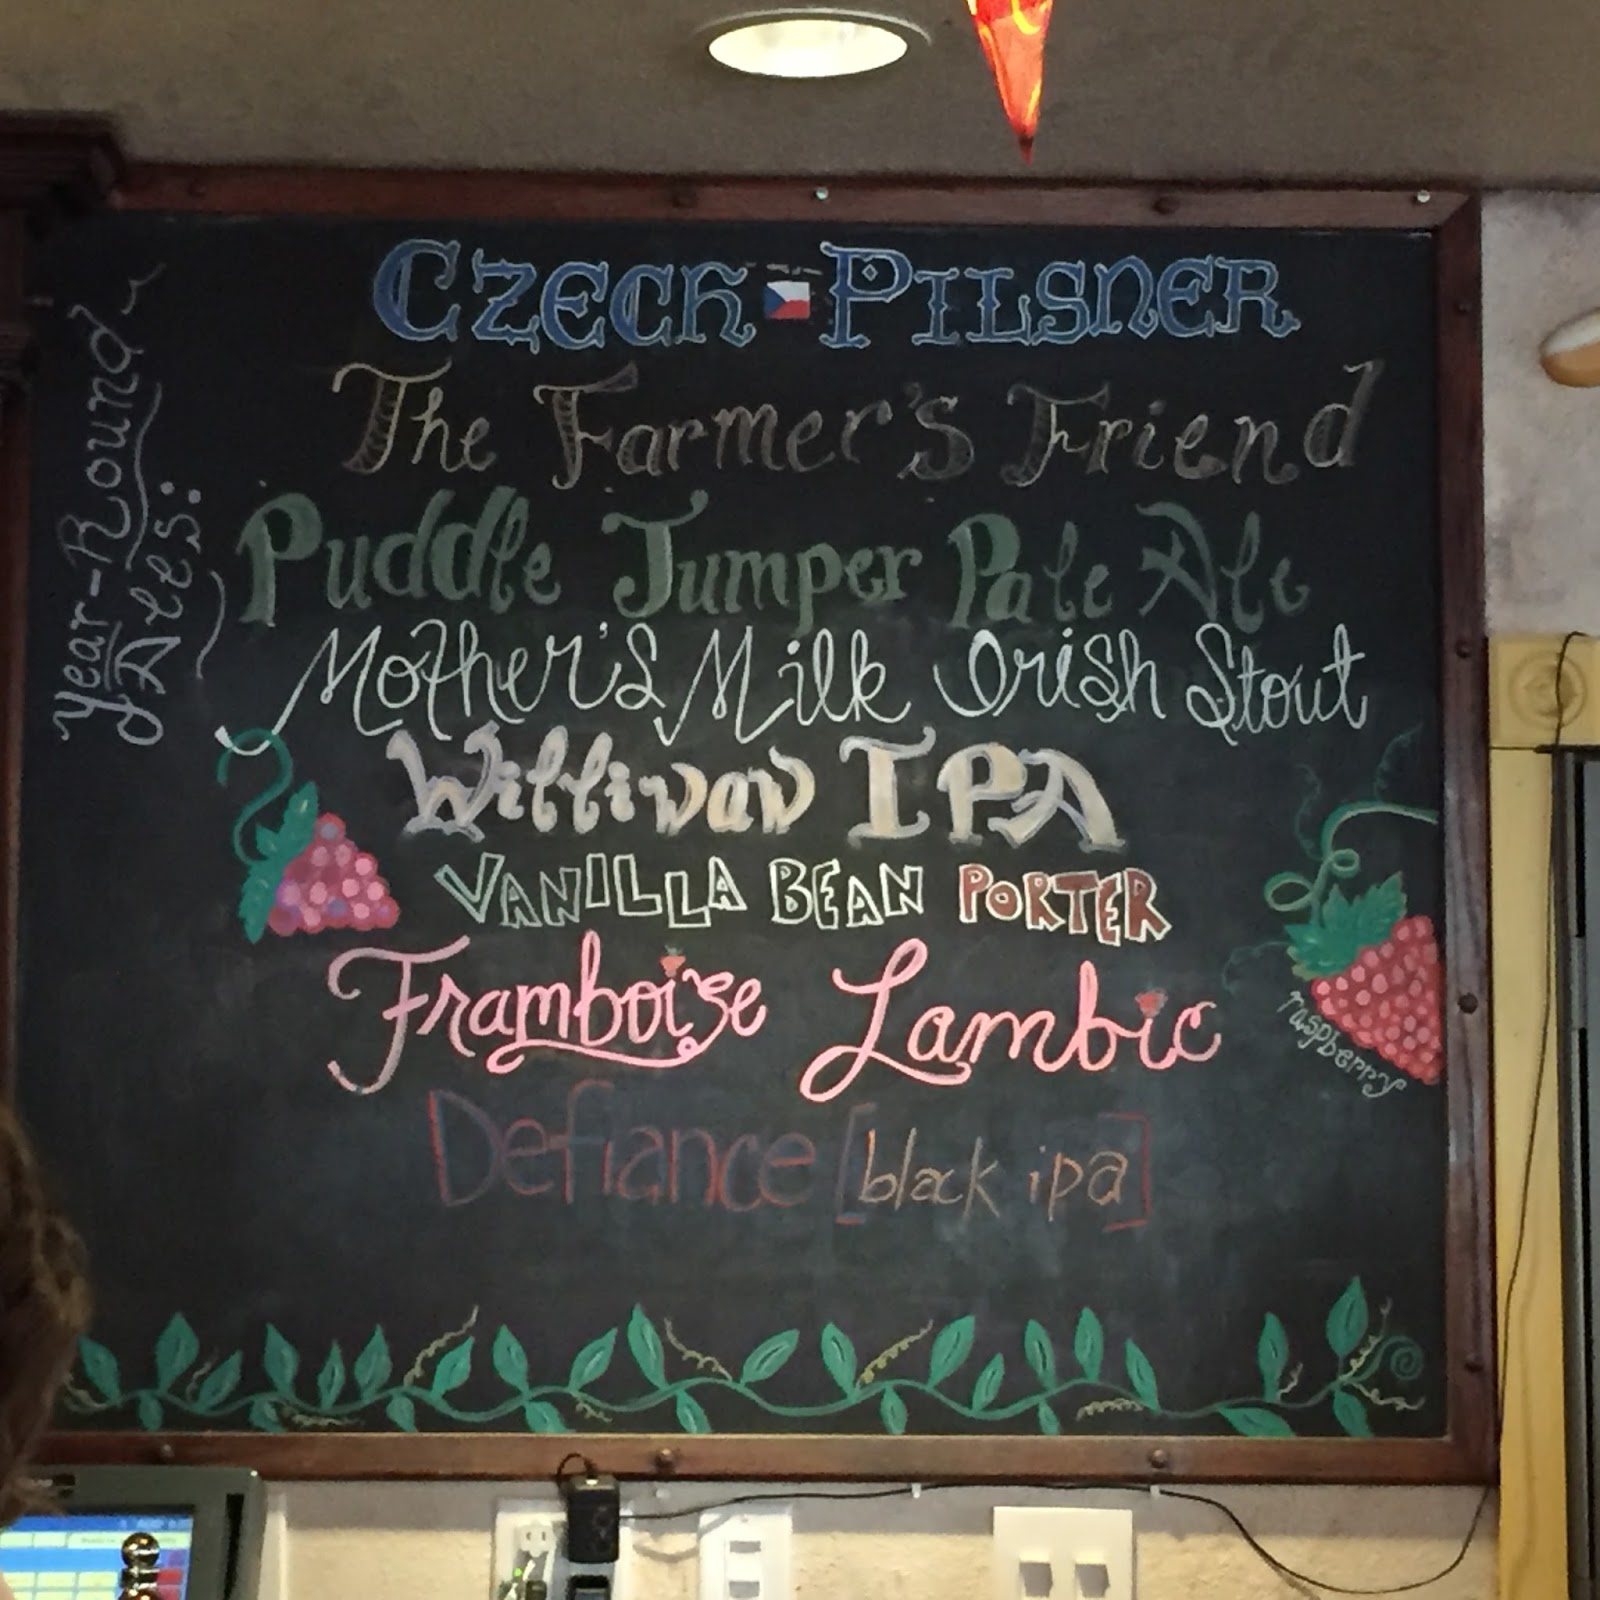 Year-Round
Ales:
Czech Pilsner
The Farmer's Friend
Puddle Jumper Pale Ale
Mother's Milk Irish Stout
Williwaw IPA
VANILLA BEAN PORTER
Framboise Lambic
raspberry
Defiance [black ipa]